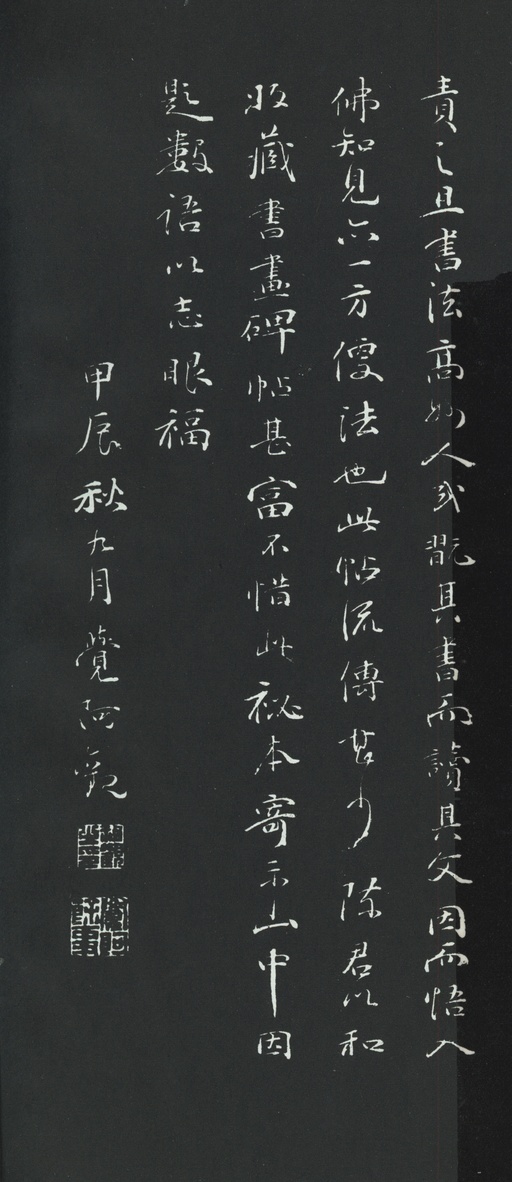 責之且書法高妙人或翫其書而讀其文因而悟入
佛知見亦一方便法也此帖流傳甚少陳君以和
收藏書畫碑帖甚富不惜此秘本寄示山中因
題數語以志眼福
甲辰秋九月覺阿觀